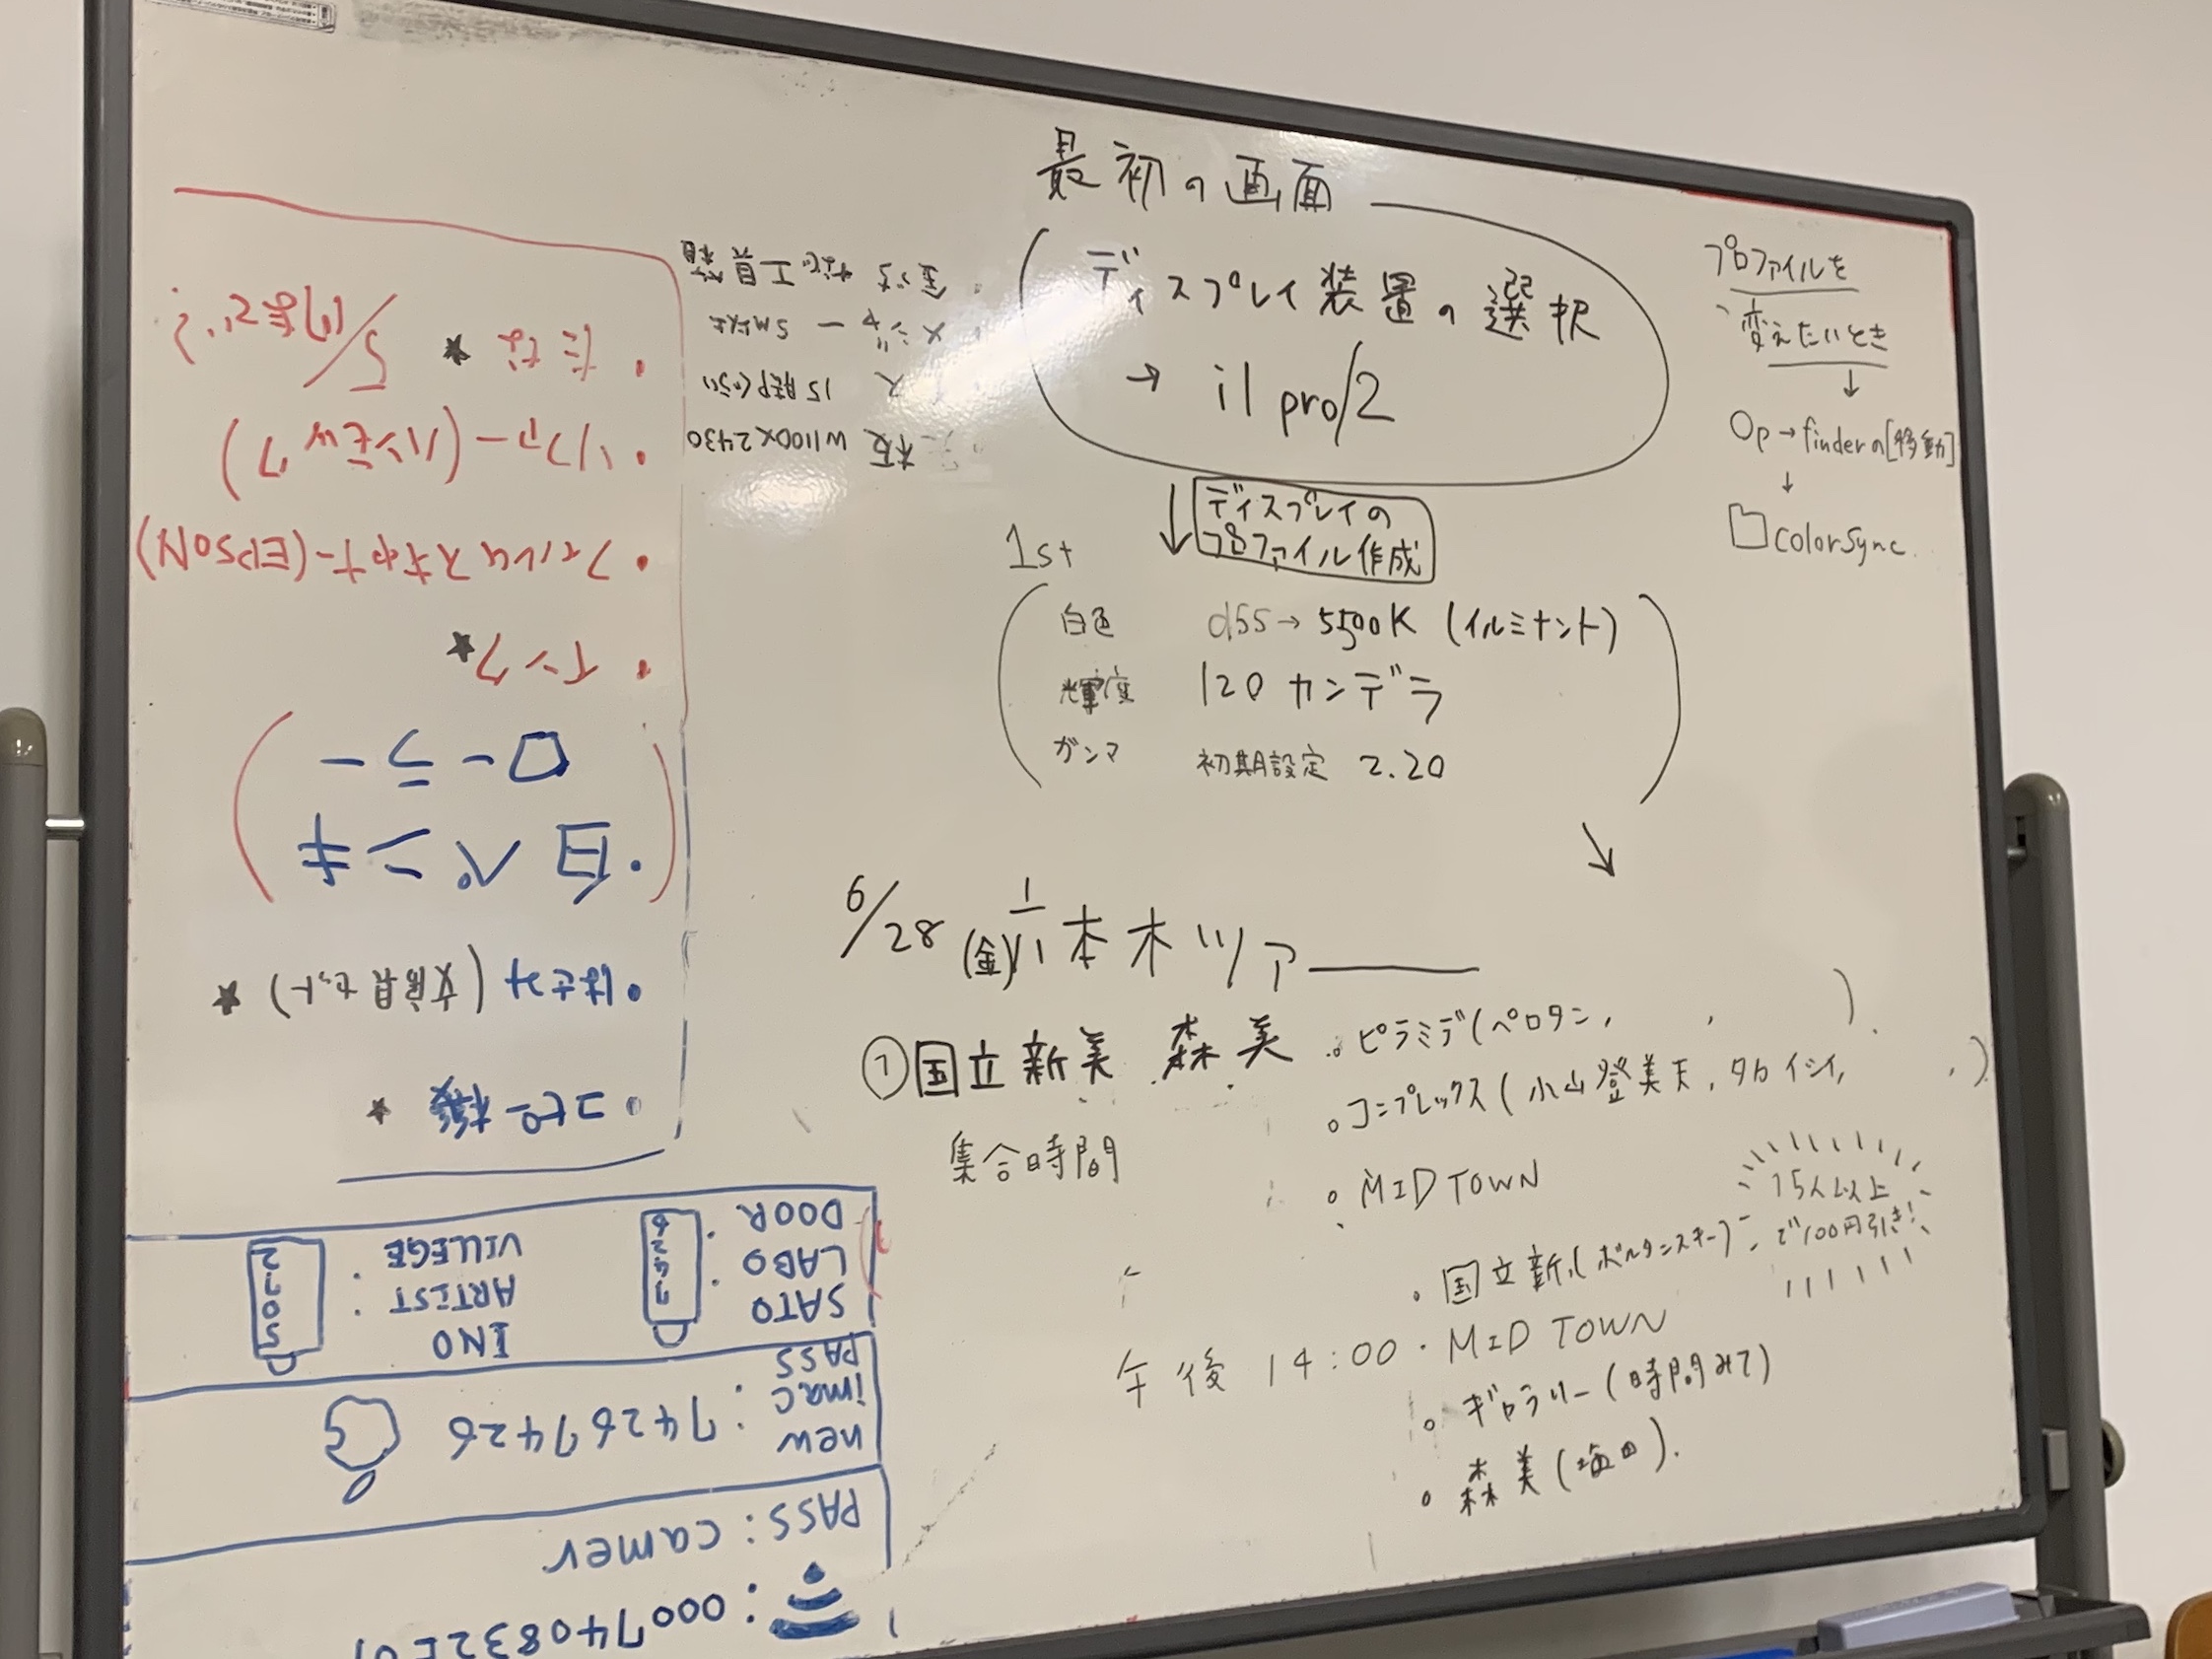 最初の画面
ディスプレイ装置の選択
→ i1 pro/2
↓ ディスプレイの
プロファイル作成
1st
白色 d55→5500K (イルミナント)
輝度 120 カンデラ
ガンマ 初期設定 2.20
↘
プロファイルを
変えたいとき
↓
Op→finderの[移動]
↓
colorSync.
6/28 (金) 六本木ツアー
①国立新美 森美
集合時間
・ピラミデ(ペロタン, , ).
・コンプレックス(小山登美夫, タカイシイ, , )
・MID TOWN
・国立新(ボルタンスキー)
15人以上
で100円引き!
午後 14:00・MID TOWN
・ギャラリー(時間みて)
・森美(塩田).
: 00074083
PASS: camer
new
imac
PASS
: 74267426
SATO
LABO
DOOR
: 7426
INO
ARTIST
VILLEGE
: 5072
・コピー機 ★
・はさみ (文房具セット) ★
・白ペンキ
ローラー
・インク★
・フィルムスキャナー(EPSON)
・たな ★
・板 W1100×2430
15